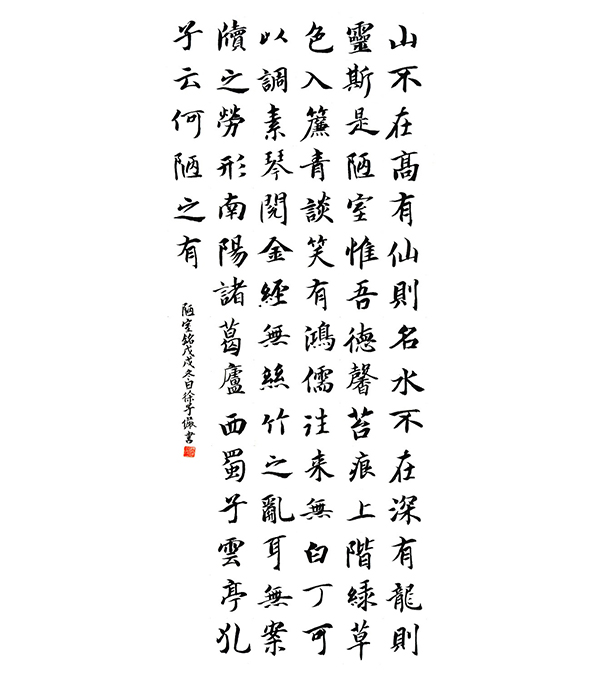 山不在髙有仙則名水不在深有龍則
靈斯是陋室惟吾德馨苔痕上階綠草
色入簾青談笑有鴻儒往来無白丁可
以調素琴閱金經無絲竹之亂耳無案
牘之勞形南陽諸葛廬西蜀子雲亭孔
子云何陋之有
陋室銘戊戌冬日徐子書